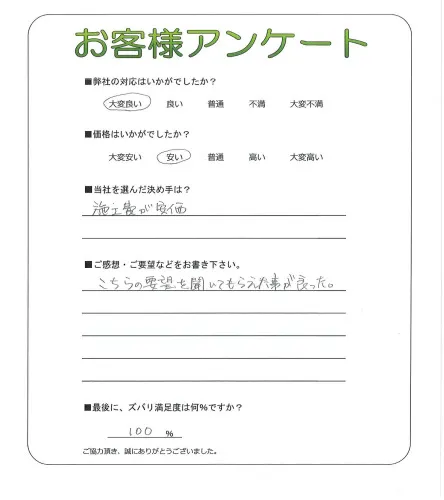 お客様アンケート
■弊社の対応はいかがでしたか？
大変良い 良い 普通 不満 大変不満
■価格はいかがでしたか？
大変安い 安い 普通 高い 大変高い
■当社を選んだ決め手は？
施工費が安価
■ご感想・ご要望などをお書き下さい。
こちらの要望を聞いてもらえた事が良った。
■最後に、ズバリ満足度は何%ですか？
100 %
ご協力頂き、誠にありがとうございました。